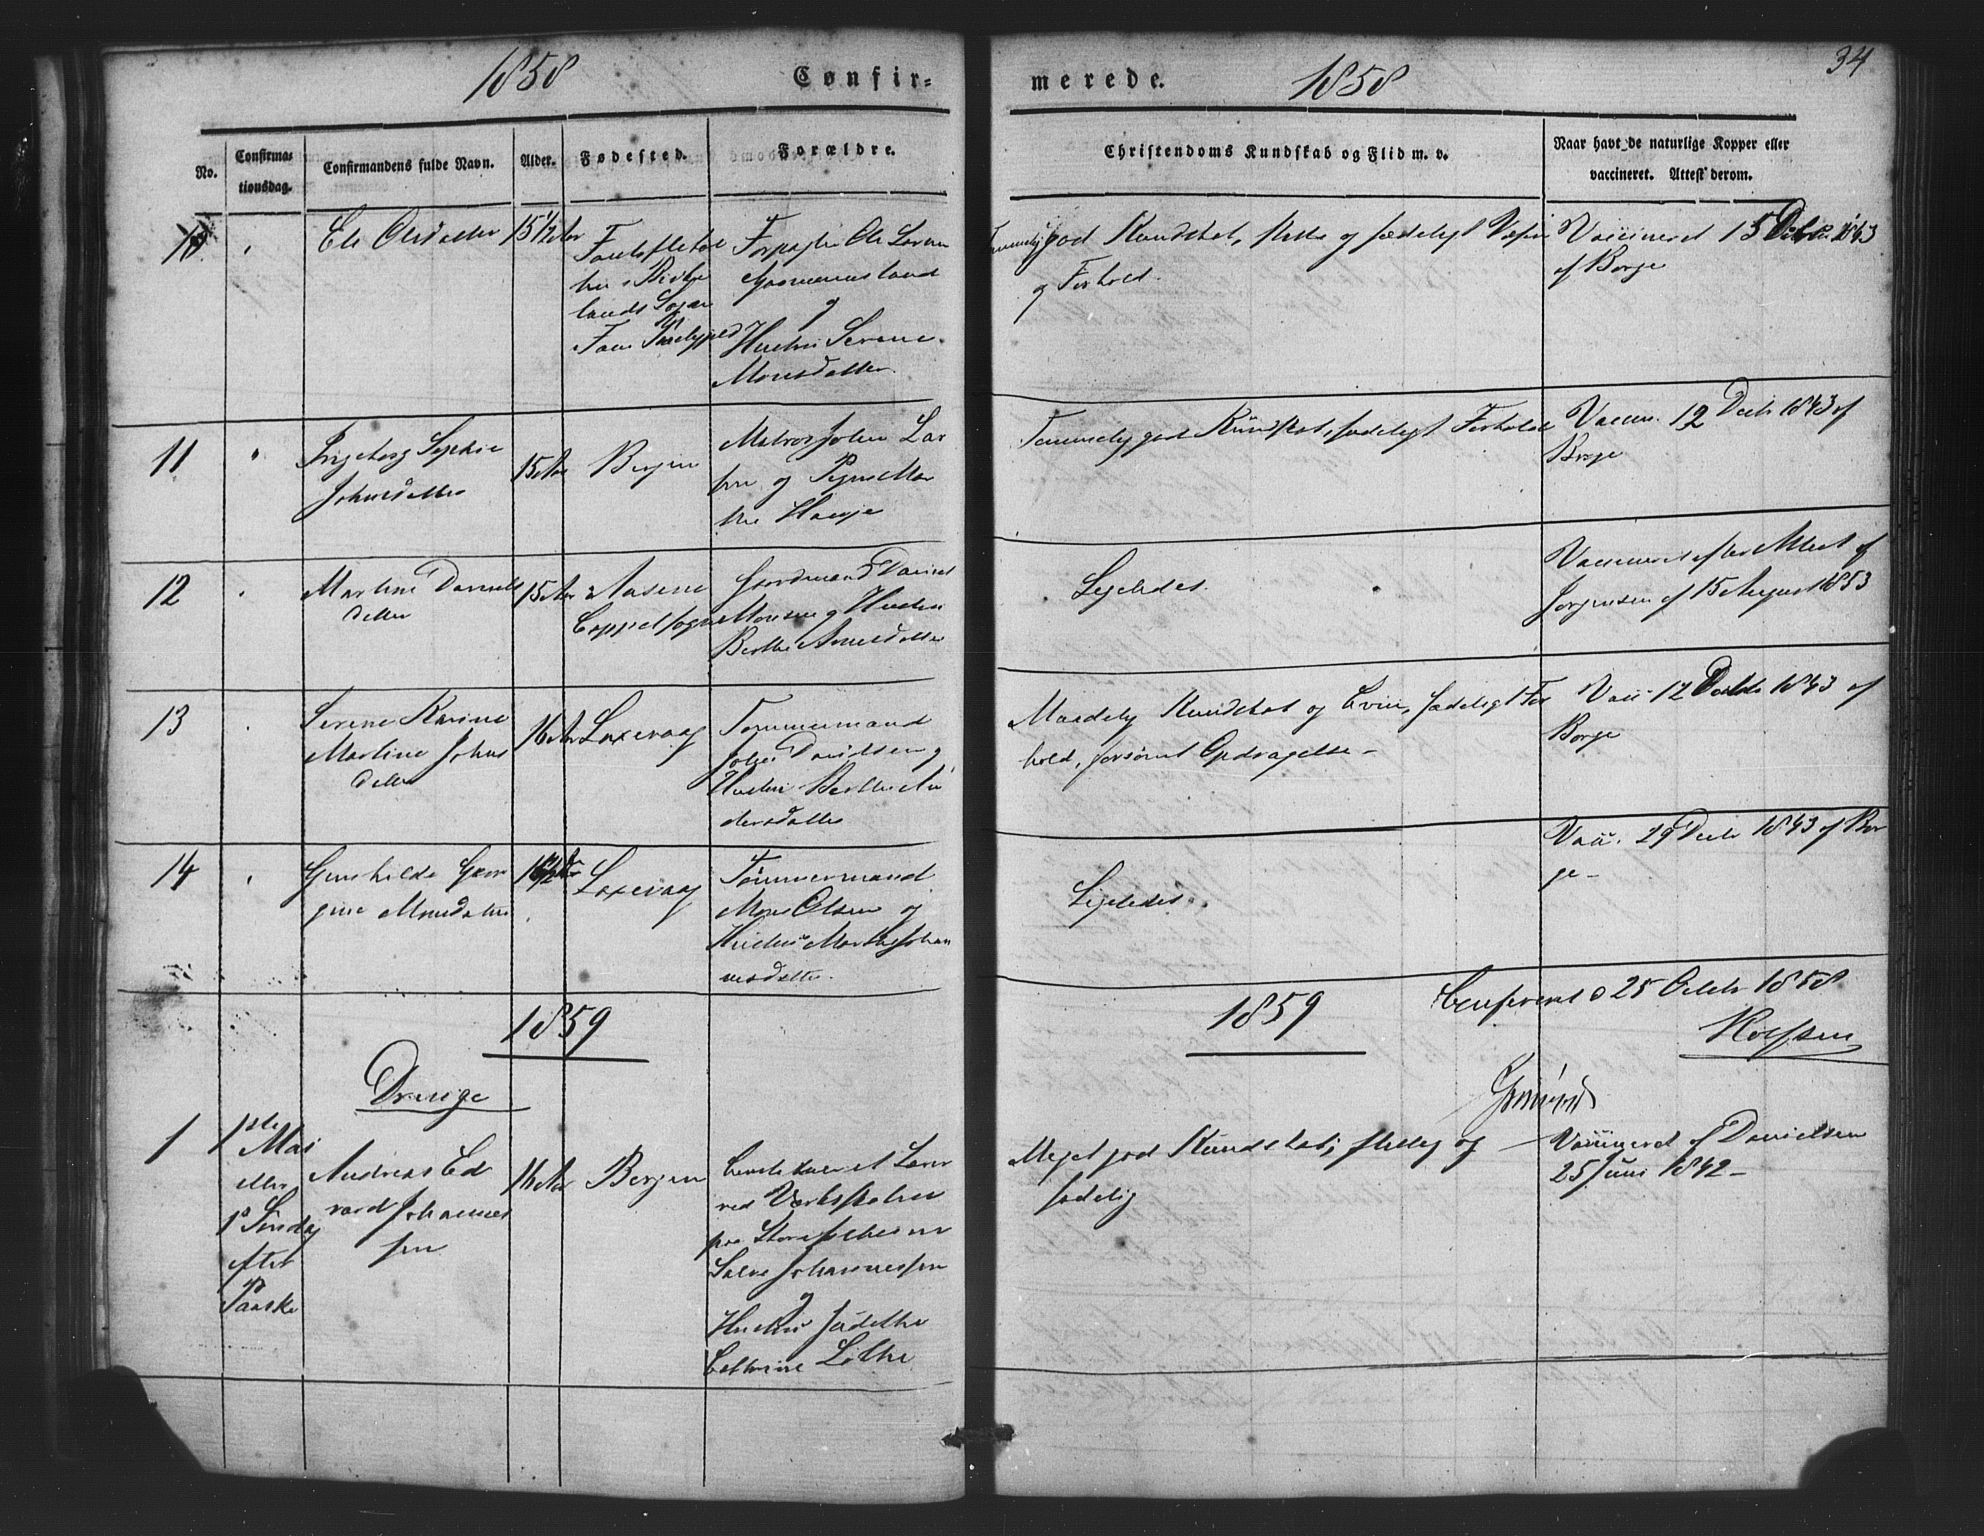 1858 Confir= merede. 1858 34
No. Confirma= tionsdag. Confirmandens fulde Navn. Alder. Fødested. Forældre. Christendoms Kundskab og Flid m. v. Naar havt de naturlige Kopper eller vaccineret. Attest derom.
10 " Eli Olsdatter 15 1/2 Aar
Forpagter Ole Larsen
og
Hustru Serene
Monsdatter
god Kundskab, stille og sædeligt Væsen
og Forhold.
Vaccineret 15 Decbr 1843
af Borge
11 " Ingeborg Sophie
Johnsdatter
15 Aar Bergen
Matros John Lar
sen og Pige Mar
the Hauge
Temmelig god Kundskab, sædeligt Forhold
Vaccin. 12 Decbr 1843 af
Borge
12 " Martine Daniels
datter
15 Aar Aasene
Coppel sogn
Gaardmand Daniel
Monsen og Hustru
Berthe Arnesdatter
Ligeledes.
Vaccineret efter Attest af
Jørgensen af 15 August 1853
13 " Serene Karine
Martine Johns
datter
16 Aar Laxevaag
Tømmermand
John Davidsen og
Hustru Berthe An
dersdatter
Maadelig Kundskab og Evne, sædeligt For
hold, forsømt Opdragelse -
Vacc 12 Decbr 1843 af
Borge
14 " Gunhilde Geor
gine Monsdatter
16 1/2 Aar Laxevaag
Tømmermand
Mons Olsen og
Hustru Marthe Johan
nesdatter.
Ligeledes.
Vacc. 29 Decbr 1843 af Bor
ge -
Confereret d 25 Octbr 1858
1859 1859
Drenge
1 1ste Mai
eller
1s Søndag
efter
Paaske
Andreas Ed
vard Johannes
sen
16 Aar Bergen
ved Værkstedet
Salve Johannessen
og
Hustru
Cathrine Lütke
Meget god Kundskab, flittig og
sædelig
Vaccineret af Danielsen
25 Juni 1842 -